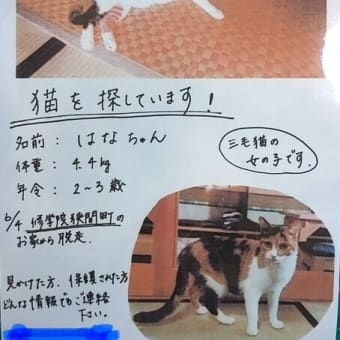 猫を探しています!
名前： はなちゃん
体重： 4.4kg
年令： 2～3歳
三毛猫の
女の子です.
6/4 修学院狭間町の
お家から脱走.
見かけた方、保護された方
どんな情報でもご連絡
下さい.